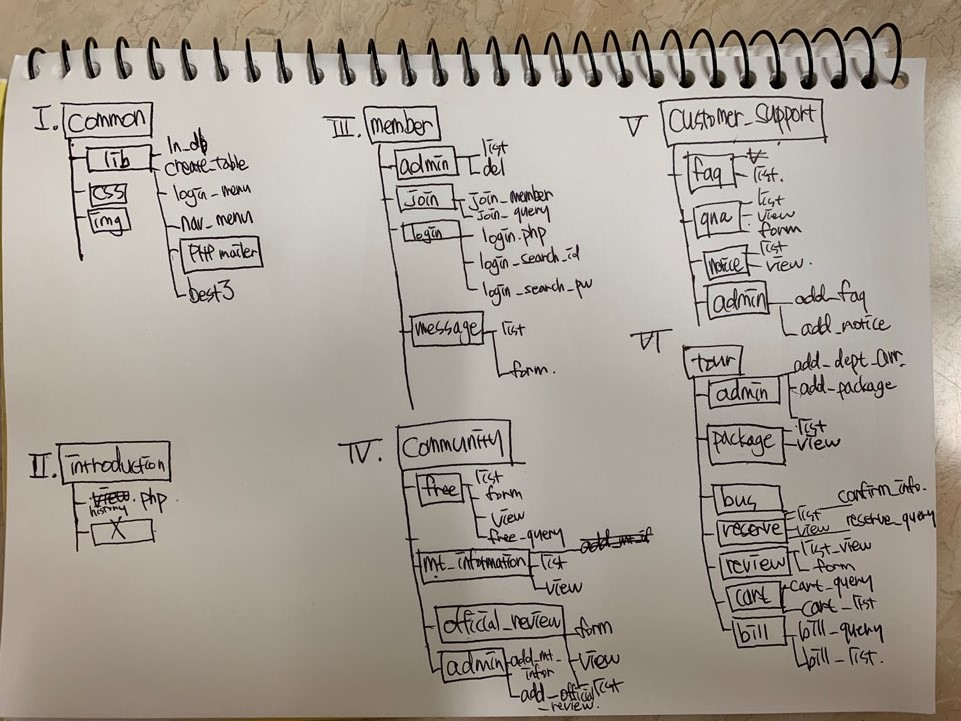 I. common
lib
In_db
create_table
login_menu
nav_menu
PHP mailer
best3
css
img
II. introduction
history.php
X
III. member
admin
list
del
join
join_member
join_query
login
login.php
login_search_id
login_search_pw
message
list
form.
IV. community
free
list
form
view
free_query
mt_information
list
view
official_review
form
view
list
admin
add_mt_
infor
add_official
_review.
V customer_support
faq
list.
qna
list
view
form
notice
list
view.
admin
add_faq
add_notice
VI
tour
admin
add_dept_arr.
add_package
package
list
view
bus
reserve
list
view
confirm_info.
reserve_query
review
list_view
form
cart
cart_query
cart_list
bill
bill_query
bill_list.